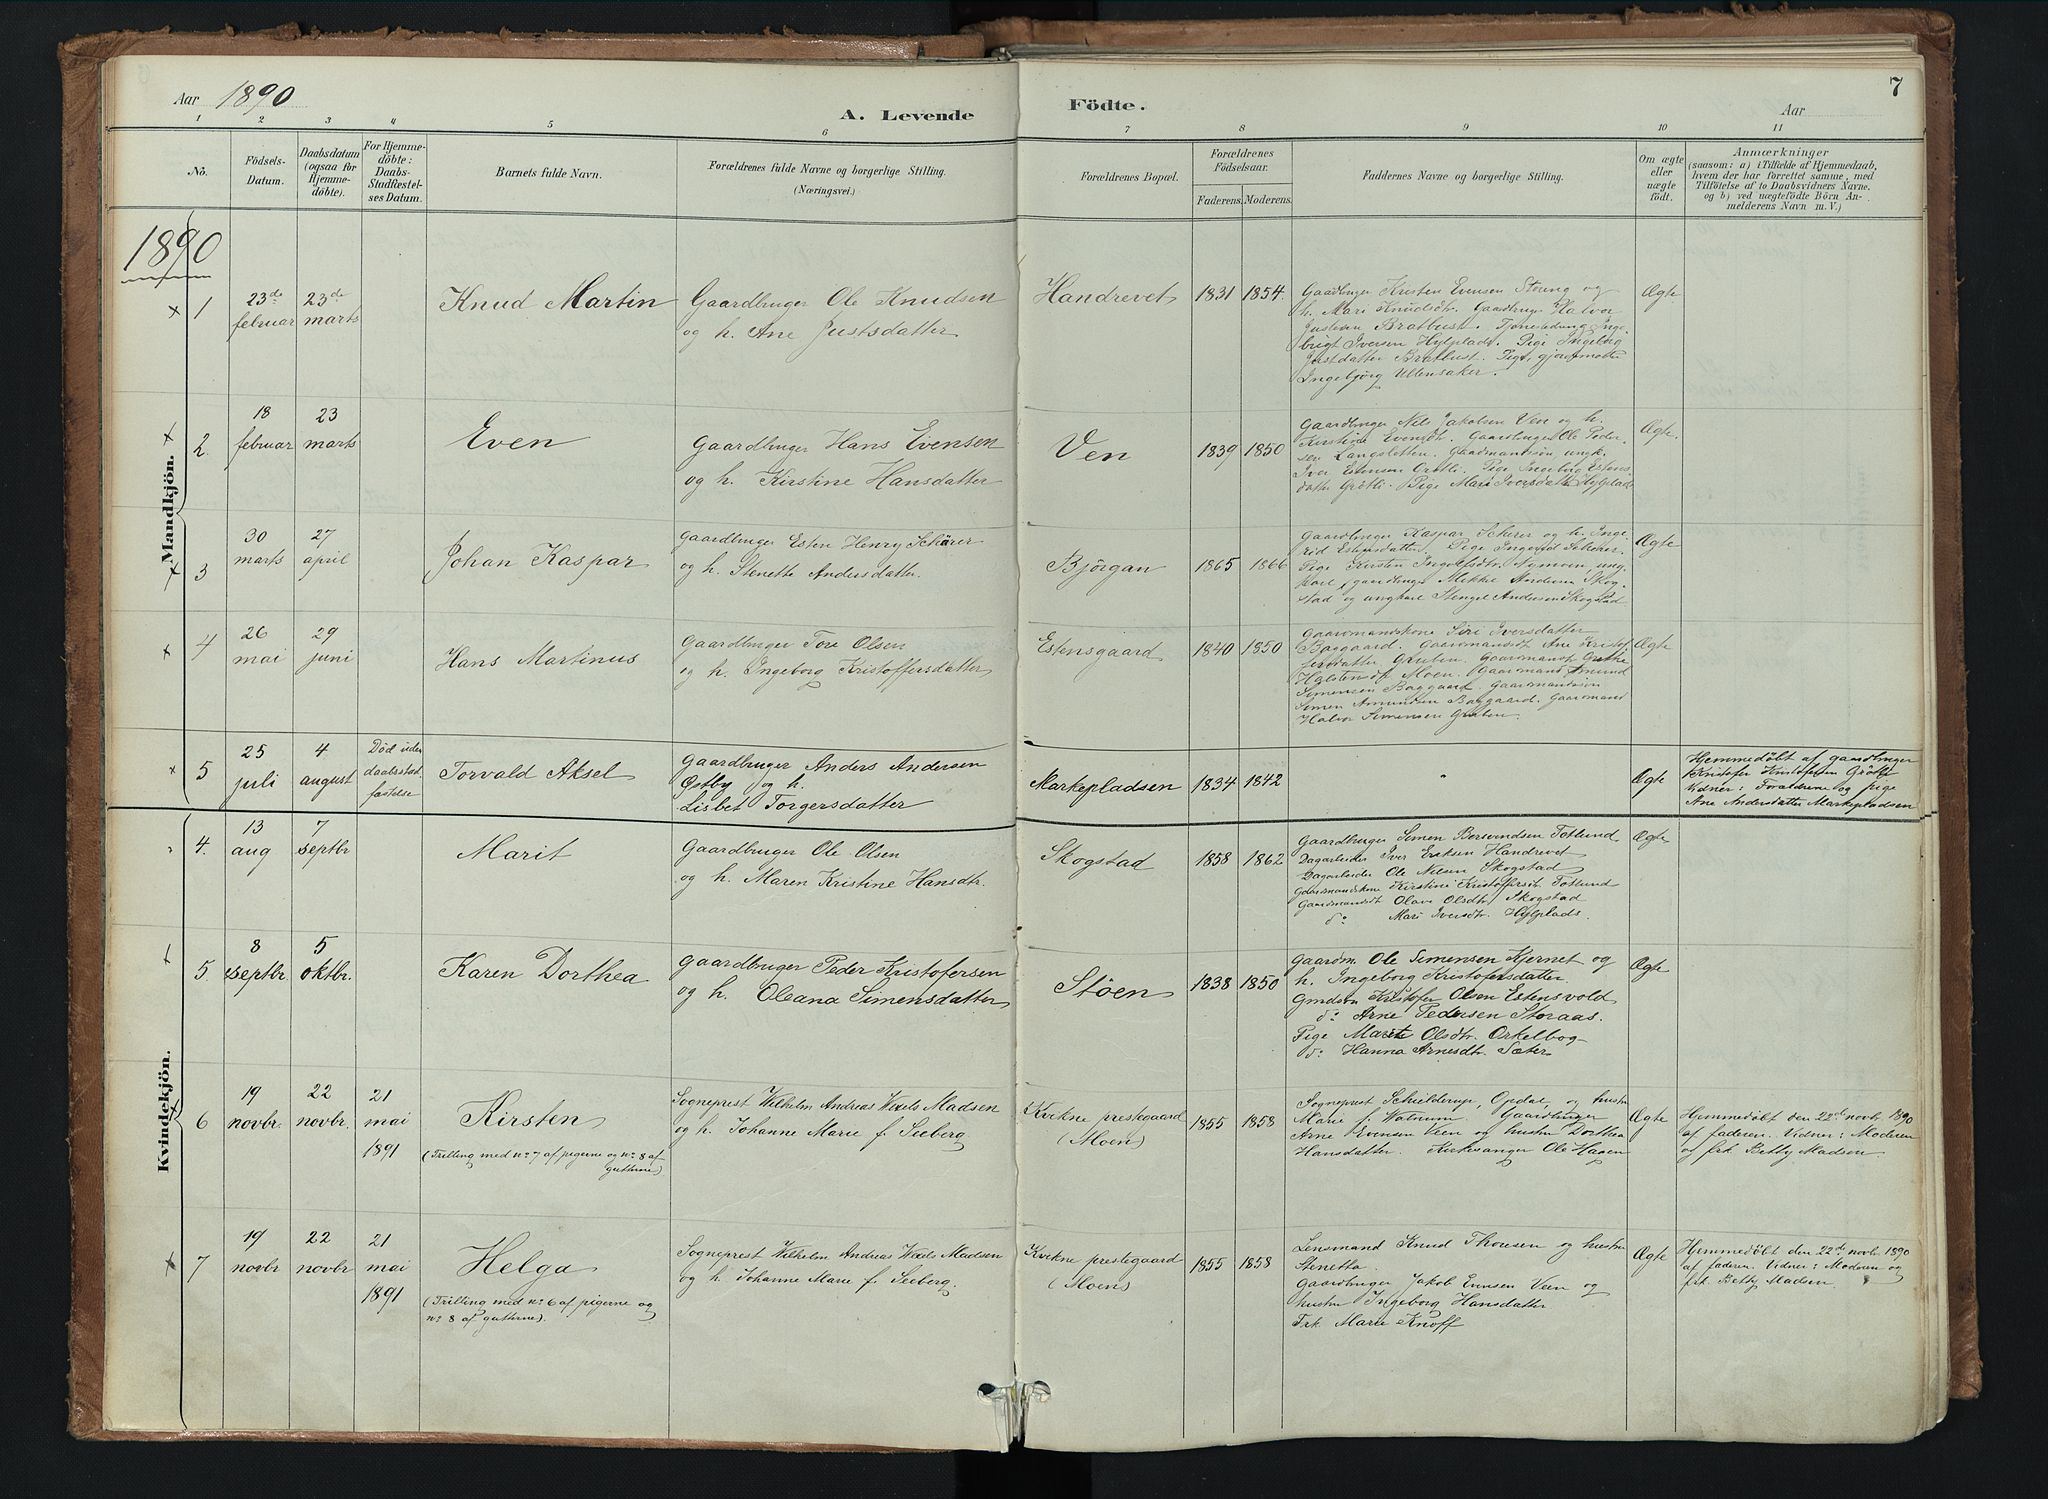 Aar 1890
A. Levende Födte.
7
Aar
1 2 3 4 5 6 7 8 9 10 11
No.
Födsels-
Datum.
Daabsdatum
(ogsaa for
Hjemme-
döbte).
For Hjemme-
döbte:
Daabs-
Stadfæstel-
ses Datum.
Barnets fulde Navn.
Forældrenes fulde Navne og borgerlige Stilling.
(Næringsvei.)
Forældrenes Bopæl.
Forældrenes
Födselsaar.
Faderens. Moderens.
Faddernes Navne og borgerlige Stilling.
Om ægte
eller
uægte
födt.
Anmærkninger
(saasom: a) i Tilfælde af Hjemmedaab,
hvem der har forrettet samme, med
Tilföielse af to Daabsvidners Navne,
og b) ved uægtefödte Börn An-
melderens Navn m. V.)
1890
Mandkjön.
1
23de
februar
23de
marts
Knud Martin
Gaardbruger Ole Knudsen
og h. Ane Justsdatter
Handrevet
1831 1854.
Gaardbruger Kristen Evensen Stoeng og
h. Mari Knudsdtr. Gaardbruger Halvor
Justsen Bratlust. Tjenestedreng Inge-
brigt Iversen Hylplads. Pige Ingeborg
Justdatter Bratlust. Pige, gjordemoder
Ingebjørg Ullensaker.
Ægte
2
18
februar
23
marts
Even
Gaardbruger Hans Evensen
og h. Kirstine Hansdatter
Ven
1839 1850
Gaardbruger Nils Jakobsen Ven og h.
Kirstine Evensdtr. Gaardbruger Ole Peder-
sen Langsletten. Gaardmandssøn, ungk.
Iver Estensen Grøtli. Pige Ingeborg Estens-
datter Grøtli. Pige Mari Iversdatter Hylplads
Ægte.
3
30
marts
27
april
Johan Kaspar
Gaardbruger Esten Henry Schärer
og h. Stenette Andersdatter.
Bjørgan
1865 1866
Gaardbruger Kaspar Scherer og h. Inge-
rid Estensdatter. Pige Ingerid Scherer.
Pige Kirsten Ingolfsdtr. Nymoen, ung-
karl, gaardbruger Mikkel Andersen Skog-
stad og ungkarl Stengel Andersen Skogstad
Ægte
4
26
mai
29
juni
Hans Martinus
Gaardbruger Tore Olsen
og h. Ingeborg Kristoffersdatter
Estensgaard
1840 1850
Gaardmandskone Siri Iversdatter
Baggaard. Gaardmandsdt Ane Kristof-
fersdatter Gruben. Gaardmandsdt Grethe
Halstensdt Moen. Gaardmand Amund
Simensen Baggaard. Gaardmandssøn
Simen Amundsen Baggaard. Gaardmand
Halvor Simensen Gruben.
Ægte
5
25
juli
4
august
Død uden
daabsstad-
fæstelse
Torvald Aksel
Gaardbruger Anders Andersen
Østby og h.
Lisbet Torgersdatter
Markepladsen
1834 1842
"
Ægte
Hjemmedøbt af gaardbruger
Kristofer Kristofersen Grøtli
Vidner: Forældrene og pige
Ane Andersdatter Markepladsen
Kvindekjön.
4.
13
aug
7
septbr
Marit
Gaardbruger Ole Olsen
og h. Maren Kristine Hansdtr.
Skogstad
1858 1862
Gaardbruger Simen Bersvendsen Totlund
Dagarbeider Iver Eriksen Handrevet
Dagarbeider Ole Nilsen Skogstad
Gaardmandskone Kirstine Kristoffersdt. Totlund
Gaardmandsdt Olava Olsdtr. Skogstad
do Mari Iversdtr. Hylplads.
Ægte
5
8
septbr.
5
oktbr.
Karen Dorthea
Gaardbruger Peder Kristofersen
og h. Oleana Simensdatter
Støen
1838 1850
Gaardm. Ole Simensen Kjernet og
h. Ingeborg Kristofersdatter
Gmdsøn Kristofer Olsen Estensvold
do Arne Pedersen Storaas.
Pige Marit Olsdtr. Orkelbog
do Hanna Arnesdtr. Sæter
Ægte
6
19
novbr.
22
novbr.
21
mai
1891
Kirsten
(Trilling med no 7 af pigerne og no 8 af
gutterne)
Sogneprest Wilhelm Andreas Wexels Madsen
og h. Johanne Marie f. Seeberg
Kvikne prestegaard
(Moen)
1855 1858
Sogneprest Schielderup, Opdal, og hustru
Marie f. Watnum. Gaardbruger
Arne Evensen Veen og hustru Dorthea
Hansdatter. Kirkesanger Ole Haven
Ægte
Hjemmedøbt den 22de novbr 1890
af faderen. Vidner: Moderen
og frk. Betty Madsen.
7
19
novbr
22
novbr
21
mai
1891
Helga
(Trilling med no 6 af pigerne og
no 8 af gutterne).
Sogneprest Wilhelm Andreas Wexels Madsen
og h. Johanne Marie f. Seeberg.
Kvikne prestegaard
(Moen)
1855 1858
Lensmand Knud Thonsen og hustru
Stenetta.
Gaardbruger Jakob Evensen Veen og
hustru Ingeborg Hansdatter
Frk. Marie Knoff
Ægte
Hjemmedøbt den 22de novbr 1890
af faderen. Vidner: Moderen og
frk. Betty Madsen